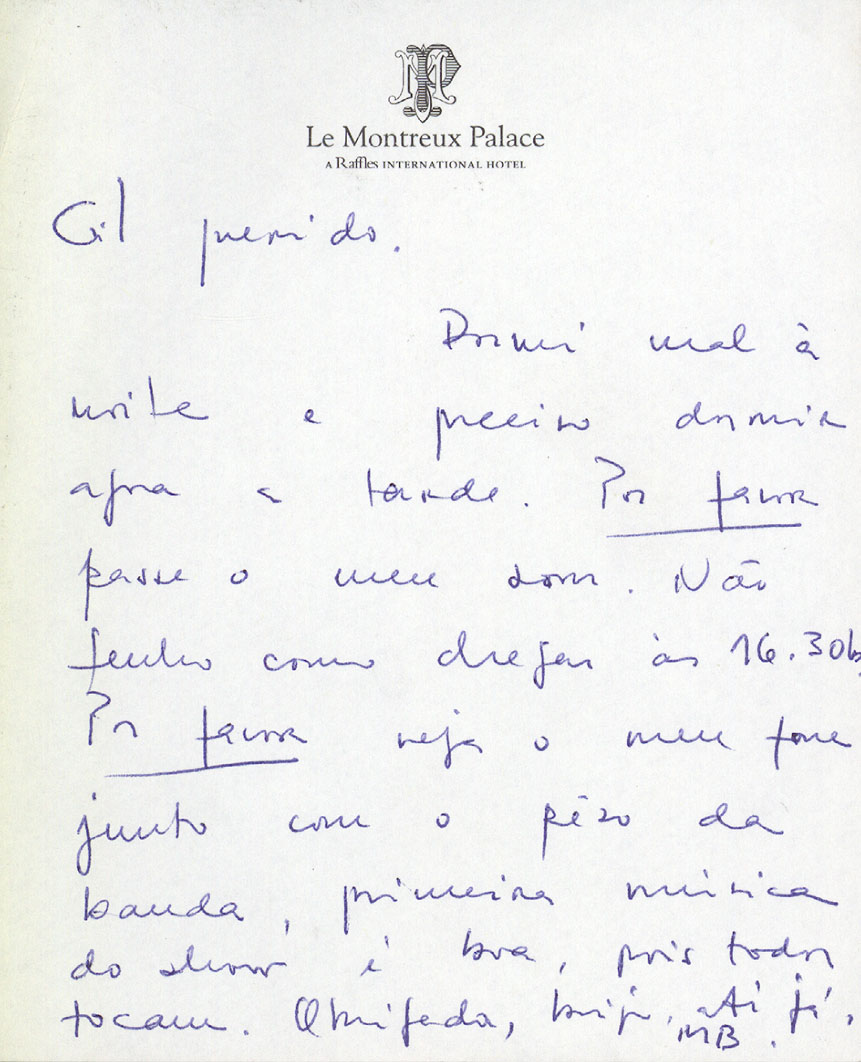 MP
Le Montreux Palace
A Raffles INTERNATIONAL HOTEL
Gil querido.
Dormi mal à
noite e preciso dormir
agora a tarde. Por favor
passe o meu som. Não
tenho como chegar às 16.30h.
Por favor veja o meu fone
junto com o pêso da
banda, primeira música
do show é boa, pois todos
tocam. Obrigada, beijo, até já,
MB.